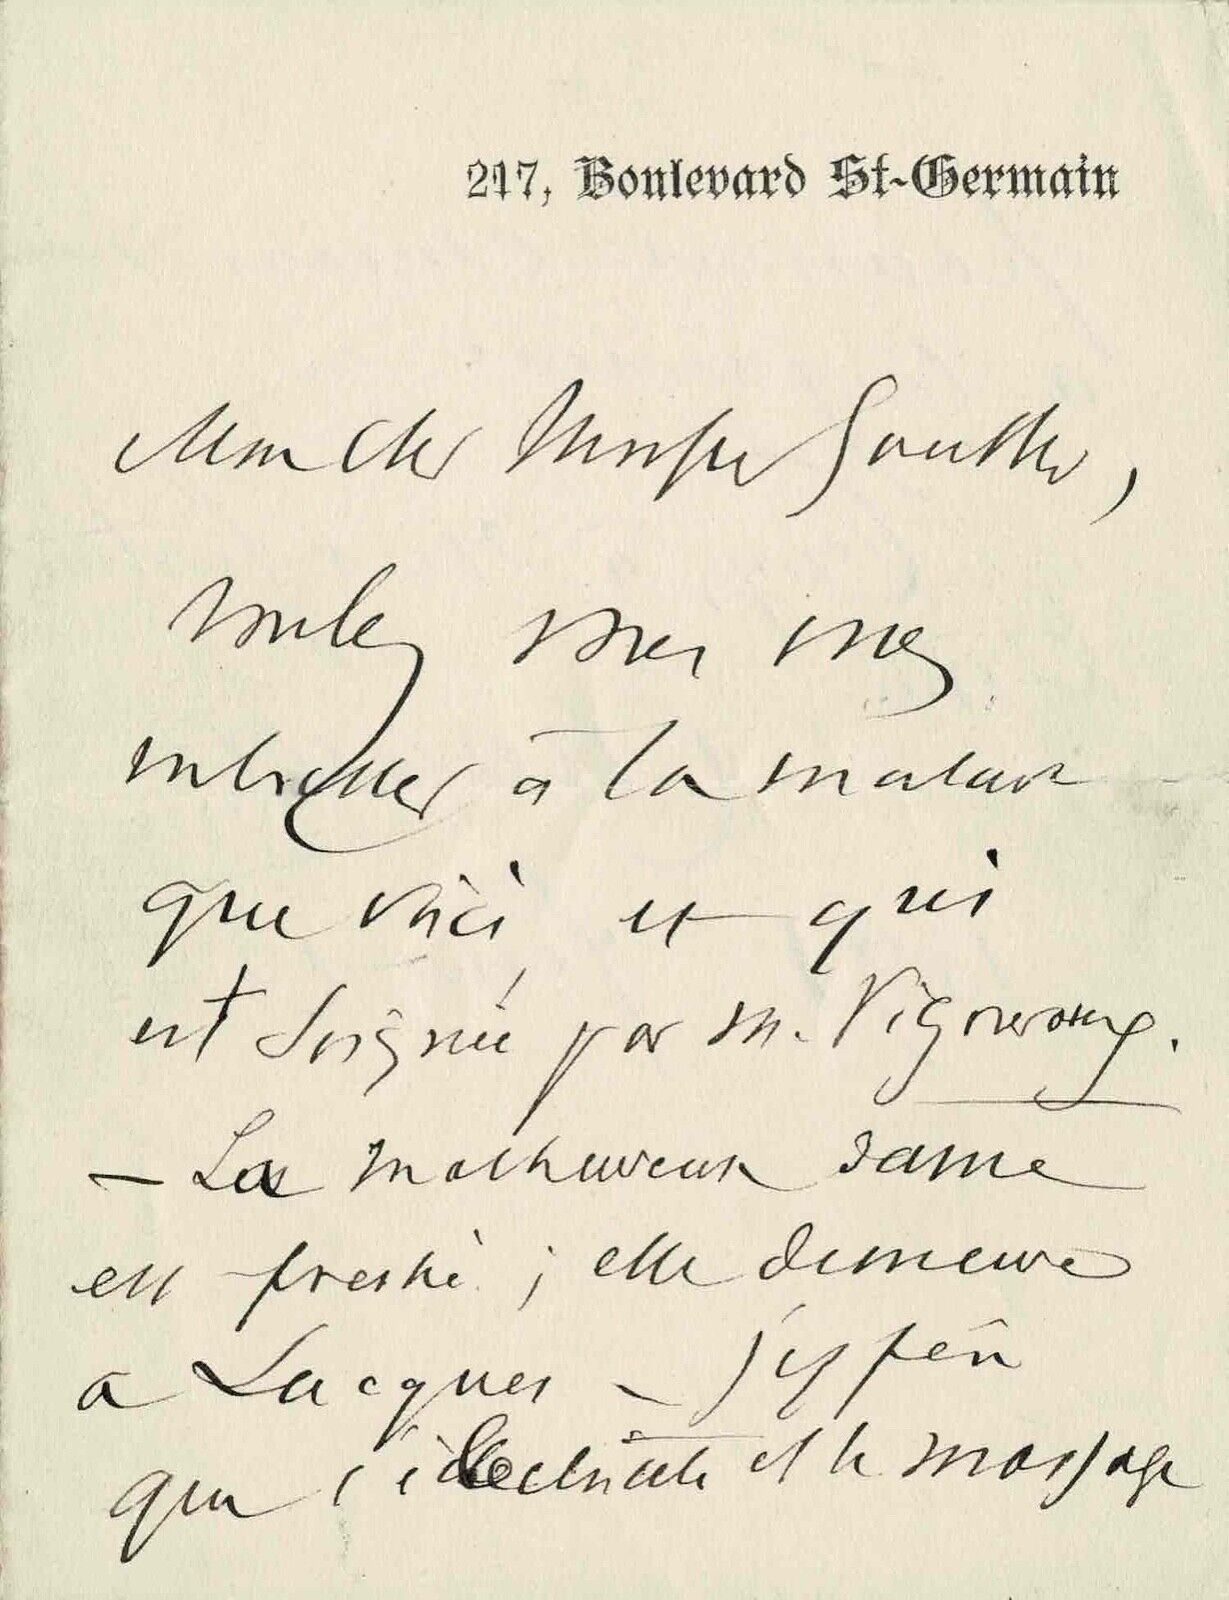 217, Boulevard St-Germain
Mon cher Monsieur Gautier,
voulez vous vous
intéresser à la malade
que voici et qui
est soignée par M. Vigouroux.
— La malheureuse dame
est ; elle demeure
a Lucques — j'espère
que l'électricité et le massage